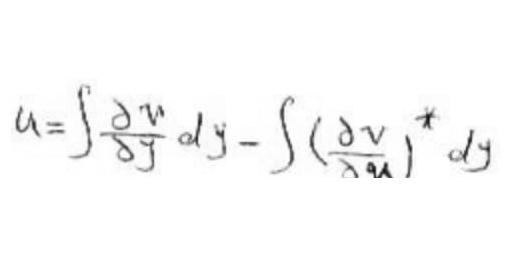 u = ∫ ∂v/∂y dy - ∫ (∂v/∂x)* dy